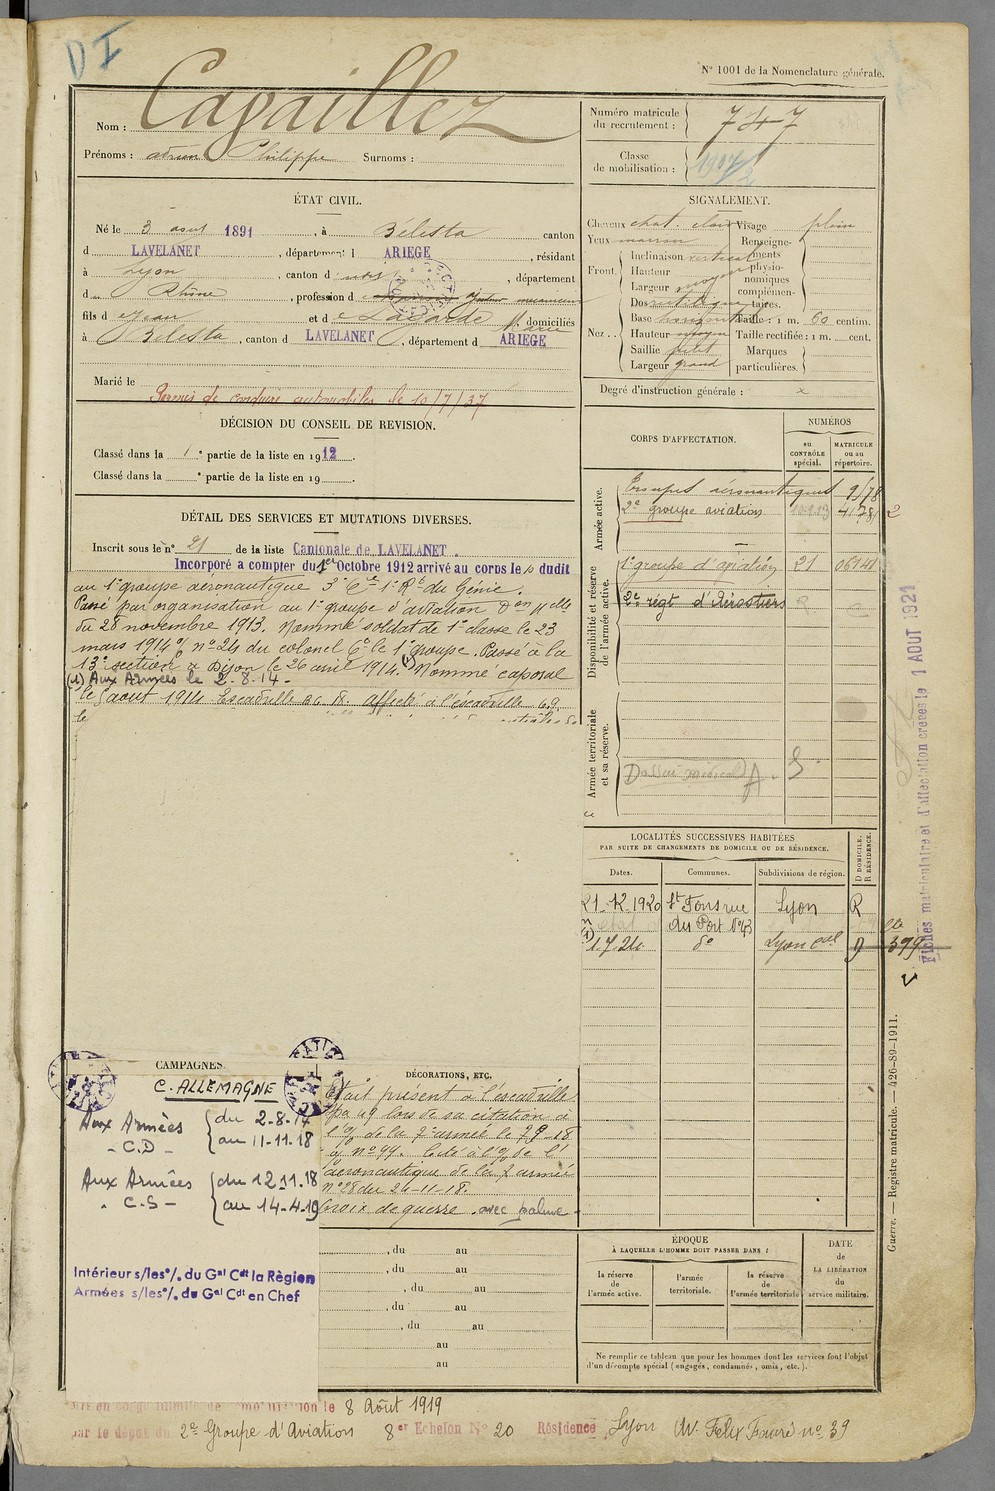 D I
N° 1001 de la Nomenclature générale.
Nom : Cagaillez
Prénoms : Philippe Surnoms :
Numéro matricule du recrutement : 747
Classe de mobilisation :
ÉTAT CIVIL.
Né le 3 aout 1891, à Bélesta canton
d LAVELANET, département d ARIEGE, résidant
à Lyon, canton d, département
d u Rhône, profession d
fils d e Jean et d e Lagarde domiciliés
à Bélesta, canton d LAVELANET, département d ARIEGE
Marié le
Permis de conduire automobiles le 10/7/37
SIGNALEMENT.
Cheveux chat. clair Visage plein
Yeux marron Renseignements physionomiques complémentaires.
Front. Inclinaison vertical
Hauteur
Largeur moy
Nez. Dos rectiligne
Base horizontale Taille : 1 m. 60 centim.
Hauteur moyen Taille rectifiée : 1 m. cent.
Saillie petit Marques particulières.
Largeur grand
Degré d'instruction générale : x
DÉCISION DU CONSEIL DE REVISION.
Classé dans la 1e partie de la liste en 1912.
Classé dans la e partie de la liste en 19 .
DÉTAIL DES SERVICES ET MUTATIONS DIVERSES.
Inscrit sous le n° 21 de la liste Cantonale de LAVELANET.
Incorporé a compter du 1er Octobre 1912 arrivé au corps le 10 dudit
au 1e groupe aéronautique 3e Cie 1e Rt du Génie.
Passé par organisation au 1e groupe d'aviation Don Nlle
du 28 novembre 1913. Nommé soldat de 1e classe le 23
mars 1914 % n° 24 du colonel Ct le 1e groupe. Passé à la
13e section à Dijon le 26 avril 1914. (1) Nommé caporal
(1) Aux Armées le 2.8.14 -
le aout 1914 Escadrille affecté à l'éscadrille 49.
le
CORPS D'AFFECTATION.
NUMÉROS
au CONTRÔLE spécial.
MATRICULE ou au répertoire.
Armée active.
Troupes aéronautiques 9178
2e groupe aviation
Disponibilité et réserve de l'armée active.
1e groupe d'aviation 21 06141
2e régt d'Aérostiers
Armée territoriale et sa réserve.
Dossier médical A. S
Fiches matriculaire et d'affectation créées le 1 AOUT 1921
LOCALITÉS SUCCESSIVES HABITÉES
PAR SUITE DE CHANGEMENTS DE DOMICILE OU DE RÉSIDENCE.
Dates. Communes. Subdivisions de région. D DOMICILE. R RÉSIDENCE.
21-12-1920 St Fons rue Lyon R
du Port N°43
1.7.24 do Lyon cal D 399
CAMPAGNES
C. ALLEMAGNE
Aux Armées du 2-8-14
- C.D - au 11-11-18
Aux Armées du 12-11-18
- C-S - au 14-4-19
Intérieur s/les % du Gal Cdt la Règion
Armées s/les % du Gal Cdt en Chef
DÉCORATIONS, ETC.
Etait présent à l'escadrille
Spa 49 lors de sa citation à
l'% de la 7e armée le 7-9-18
% n° 99. Cité à l'% de l'
aéronautique de la 7 armée
n° 28 du 24-11-18.
Croix de guerre avec palme -
, du au
, du au
, du au
, du au
, du au
au
au
ÉPOQUE
À LAQUELLE L'HOMME DOIT PASSER DANS :
la réserve de l'armée active.
l'armée territoriale.
la réserve de l'armée territoriale.
DATE de LA LIBÉRATION du service militaire.
Ne remplir ce tableau que pour les hommes dont les services font l'objet
d'un décompte spécial (engagés, condamnés, omis, etc.).
Guerre. — Registre matricule. — 426-89-1911.
mis en congé illimité de le 8 Août 1919
par le dépôt du 2e Groupe d'Aviation 8er Echelon N° 20 Résidence Lyon Av. Felix Faure n° 39